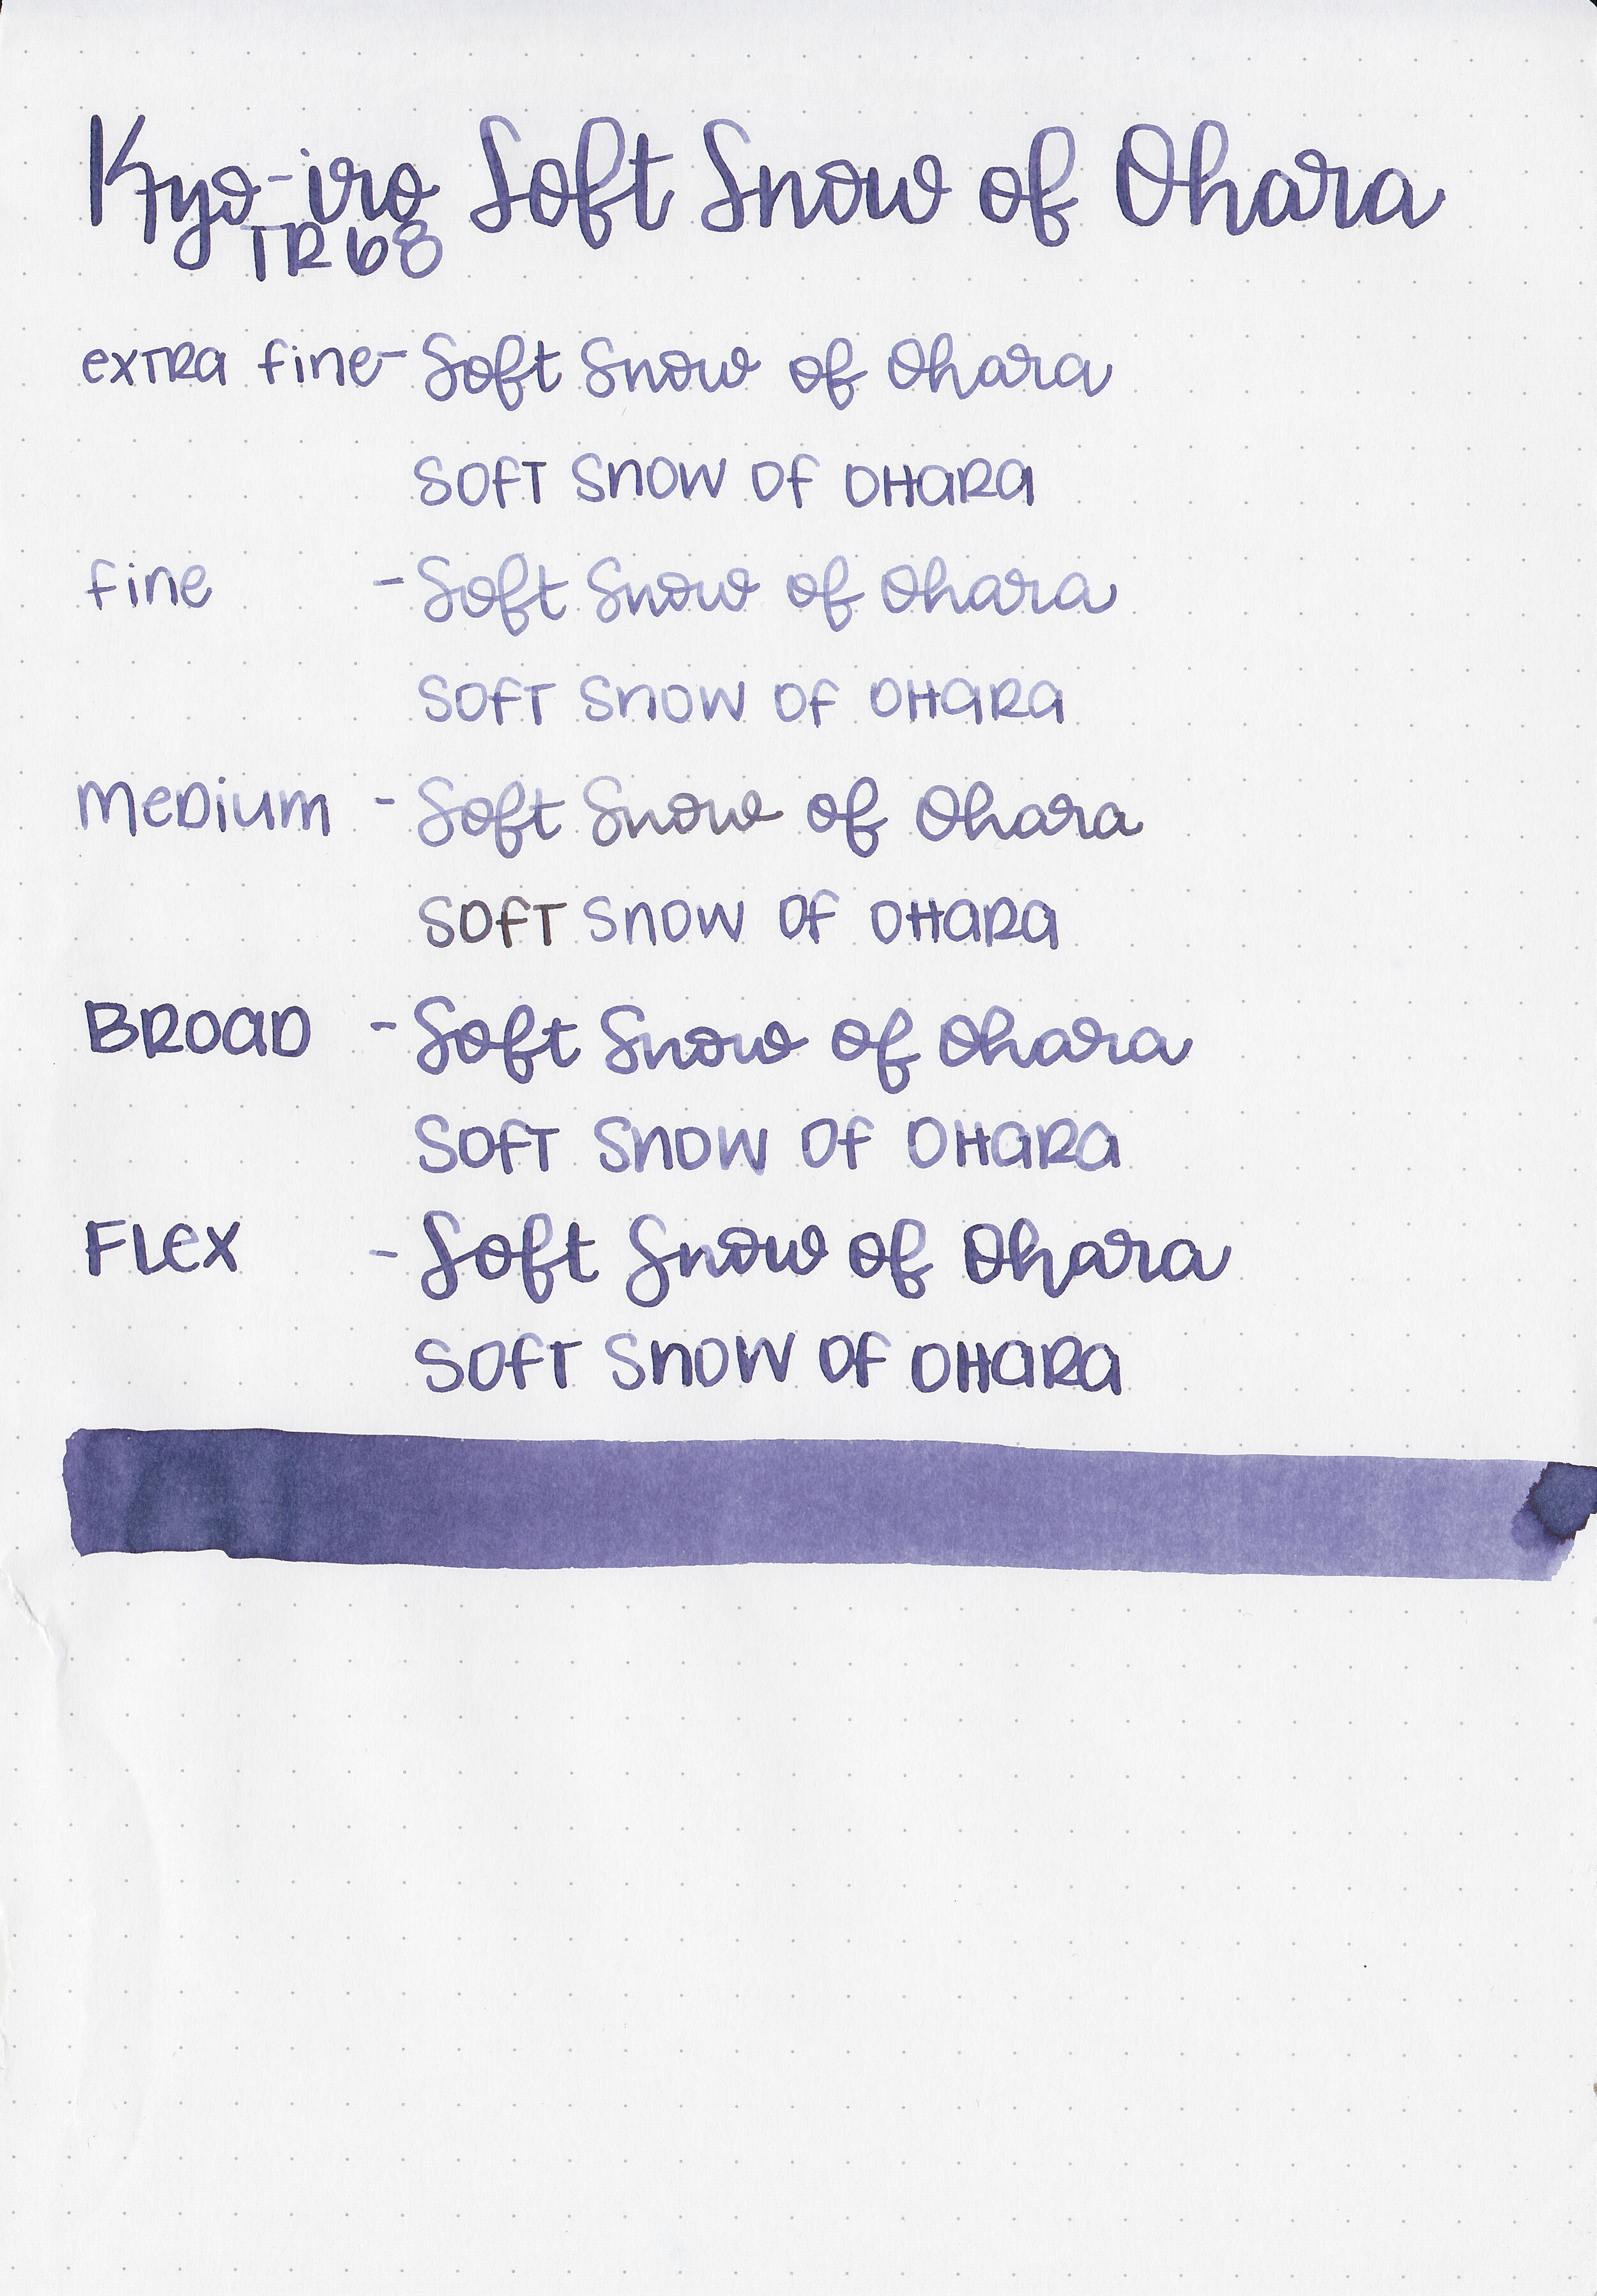 Kyo-iro Soft Snow of Ohara
TR 68
extra fine - Soft Snow of Ohara
SOFT SNOW OF OHARA
fine - Soft Snow of Ohara
SOFT SNOW OF OHARA
MEDIUM - Soft Snow of Ohara
SOFT SNOW OF OHARA
BROAD - Soft Snow of Ohara
SOFT SNOW OF OHARA
FLEX - Soft Snow of Ohara
SOFT SNOW OF OHARA